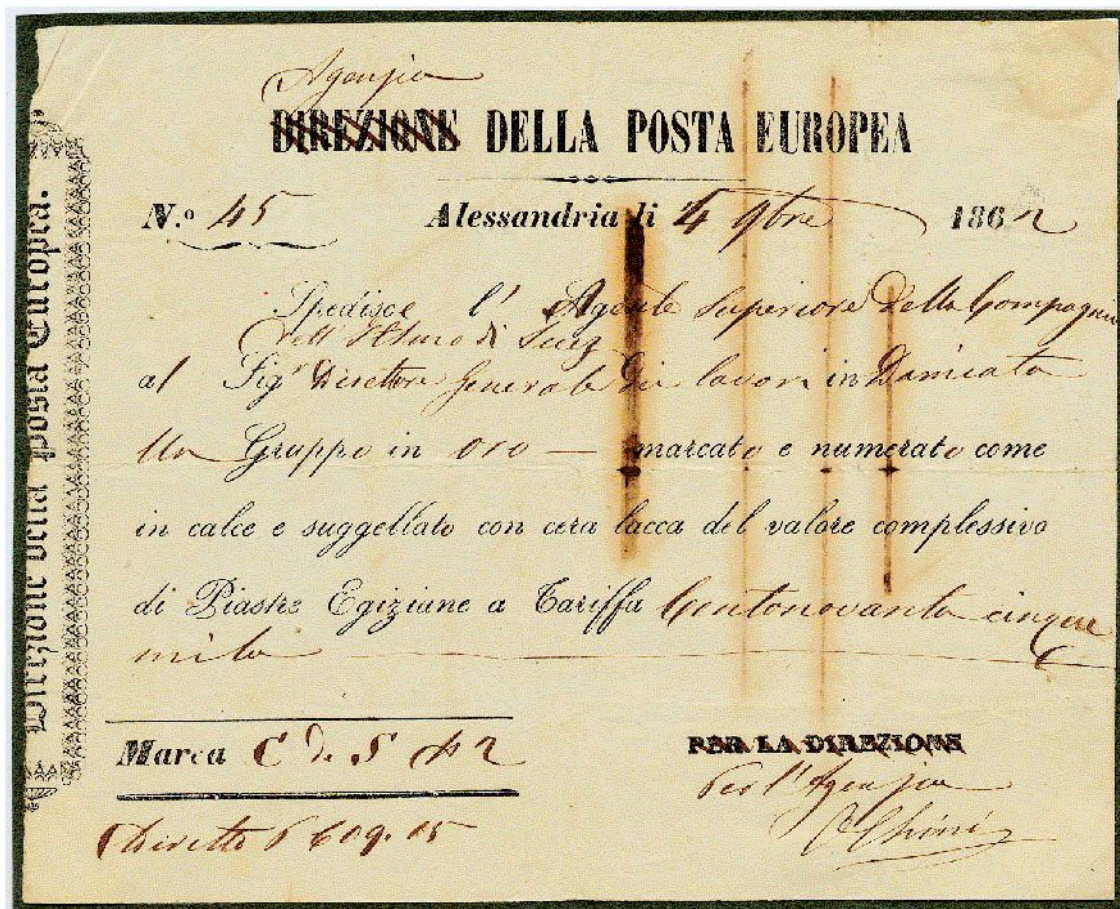 Agenzia
DIREZIONE DELLA POSTA EUROPEA
N.º 45 Alessandria li 4 9bre 1862
Spedisce l' Agente Superiore della Compagnia
dell'Istmo di Suez
al Sigr Direttore Generale dei lavori in Damiata
Un Gruppo in oro — marcato e numerato come
in calce e suggellato con cera lacca del valore complessivo
di Piastre Egiziane a Tariffa Centonovanta cinque
mila
Marca C d. S
PER LA DIREZIONE
Per l'Agenzia
Chini
Diretto 609.15
Direzione della Posta Europea.